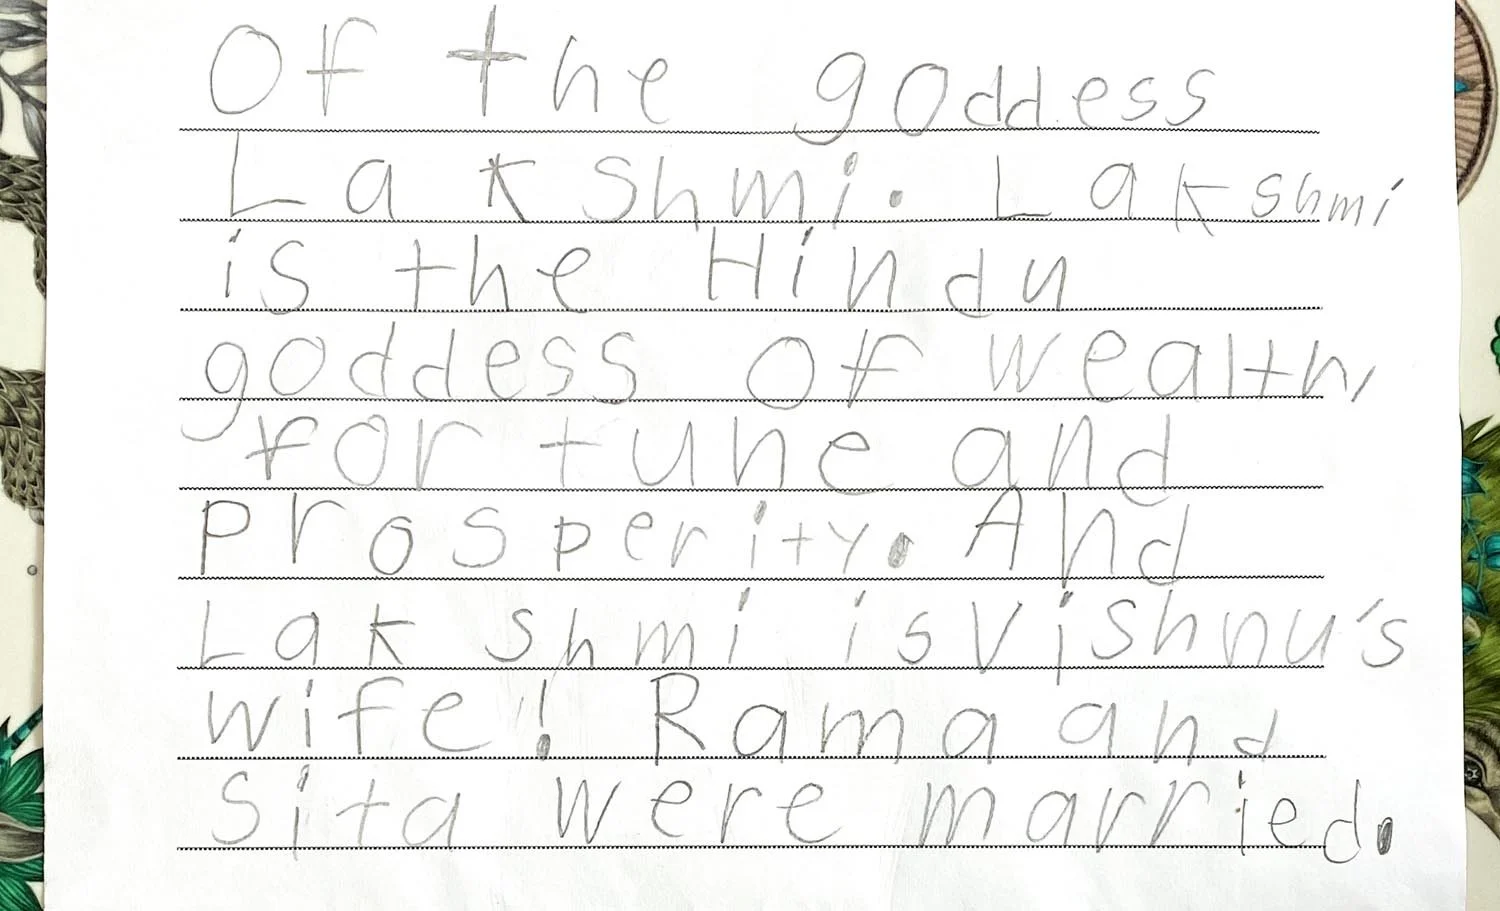 Of the goddess
Lakshmi. Lakshmi
is the Hindu
goddess of wealth,
fortune and
prosperity. And
Lakshmi is Vishnu's
wife! Rama and
Sita were married.